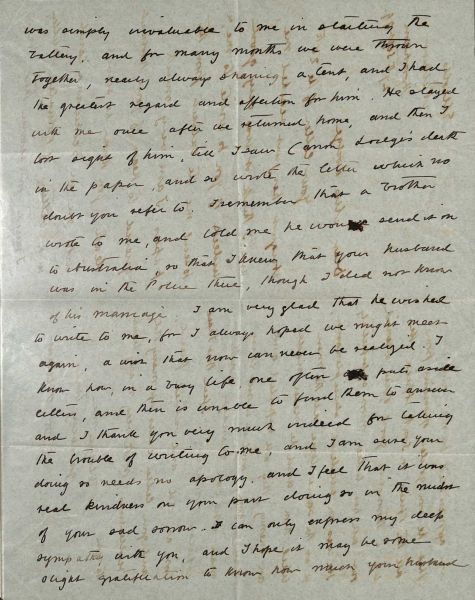 was simply invaluable to me in starting the
battery, and for many months we were thrown
together, nearly always sharing a tent, and I had
the greatest regard and affection for him. He stayed
with me once after we returned home, and then I
lost sight of him, till I saw Canon Lodge's death
in the paper, and so wrote the letter which no
doubt you refer to. I remember that a brother
wrote to me, and told me he would send it on
to Australia, so that I knew that your husband
was in the Police there, though I did not know
of his marriage. I am very glad that he wished
to write to me, for I always hoped we might meet
again, a wish that now can never be realized. I
know how in a busy life one often puts aside
letters, and then is unable to find them to answer
and I thank you very much indeed for taking
the trouble of writing to me, and I am sure your
doing so needs no apology, and I feel that it was
real kindness on your part doing so in the midst
of your sad sorrow. I can only express my deep
sympathy with you, and I hope it may be some
slight gratification to know how much your husband